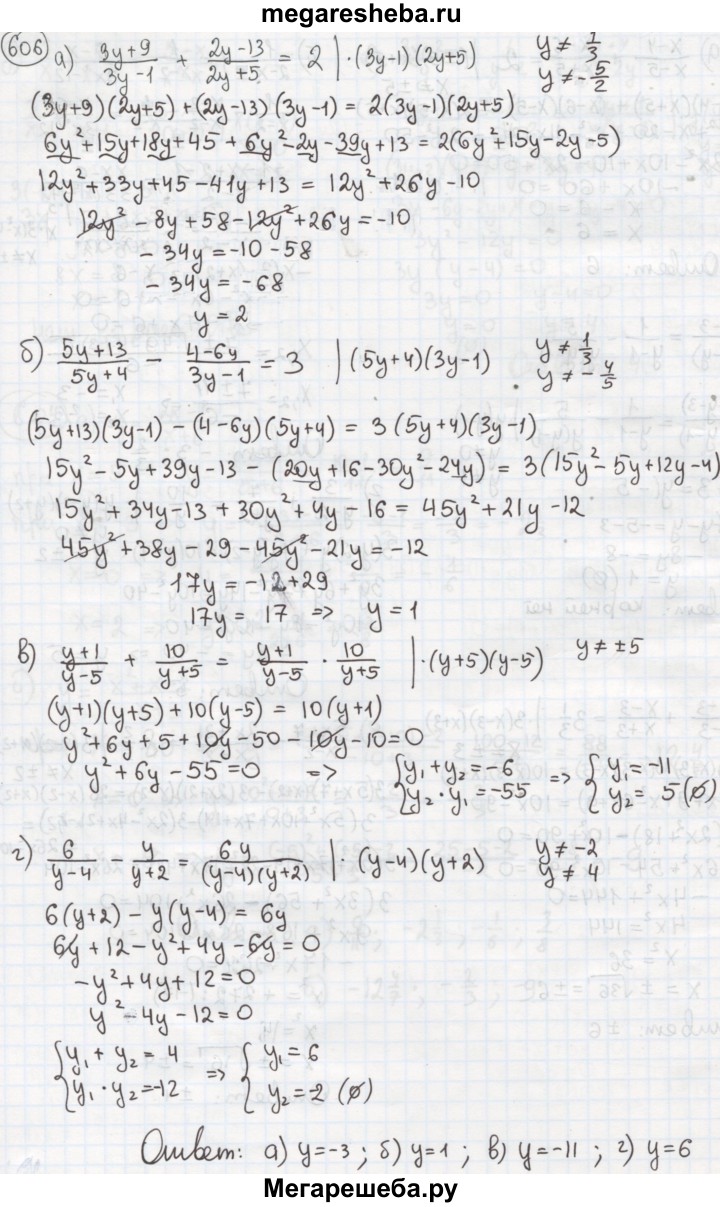 megaresheba.ru
606 а) (3y+9)/(3y-1) + (2y-13)/(2y+5) = 2 | ·(3y-1)(2y+5) y ≠ 1/3
y ≠ -5/2
(3y+9)(2y+5) + (2y-13)(3y-1) = 2(3y-1)(2y+5)
6y² + 15y + 18y + 45 + 6y² - 2y - 39y + 13 = 2(6y² + 15y - 2y - 5)
12y² + 33y + 45 - 41y + 13 = 12y² + 26y - 10
12y² - 8y + 58 - 12y² + 26y = -10
- 34y = -10 - 58
- 34y = -68
y = 2
б) (5y+13)/(5y+4) - (4-6y)/(3y-1) = 3 | (5y+4)(3y-1) y ≠ 1/3
y ≠ -4/5
(5y+13)(3y-1) - (4-6y)(5y+4) = 3(5y+4)(3y-1)
15y² - 5y + 39y - 13 - (20y + 16 - 30y² - 24y) = 3(15y² - 5y + 12y - 4)
15y² + 34y - 13 + 30y² + 4y - 16 = 45y² + 21y - 12
45y² + 38y - 29 - 45y² - 21y = -12
17y = -12 + 29
17y = 17 => y = 1
в) (y+1)/(y-5) + 10/(y+5) = (y+1)/(y-5) · 10/(y+5) | ·(y+5)(y-5) y ≠ ±5
(y+1)(y+5) + 10(y-5) = 10(y+1)
y² + 6y + 5 + 10y - 50 - 10y - 10 = 0
y² + 6y - 55 = 0 => { y₁ + y₂ = -6 => { y₁ = -11
y₂ · y₁ = -55 y₂ = 5 (∅)
г) 6/(y-4) - y/(y+2) = 6y/((y-4)(y+2)) | · (y-4)(y+2) y ≠ -2
y ≠ 4
6(y+2) - y(y-4) = 6y
6y + 12 - y² + 4y - 6y = 0
-y² + 4y + 12 = 0
y² - 4y - 12 = 0
{ y₁ + y₂ = 4 => { y₁ = 6
y₁ · y₂ = -12 y₂ = 2 (∅)
Ответ: а) y = -3 ; б) y = 1 ; в) y = -11 ; г) y = 6
Мегарешеба.ру